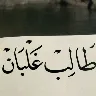 طَالِبْ غَلْبَانْ